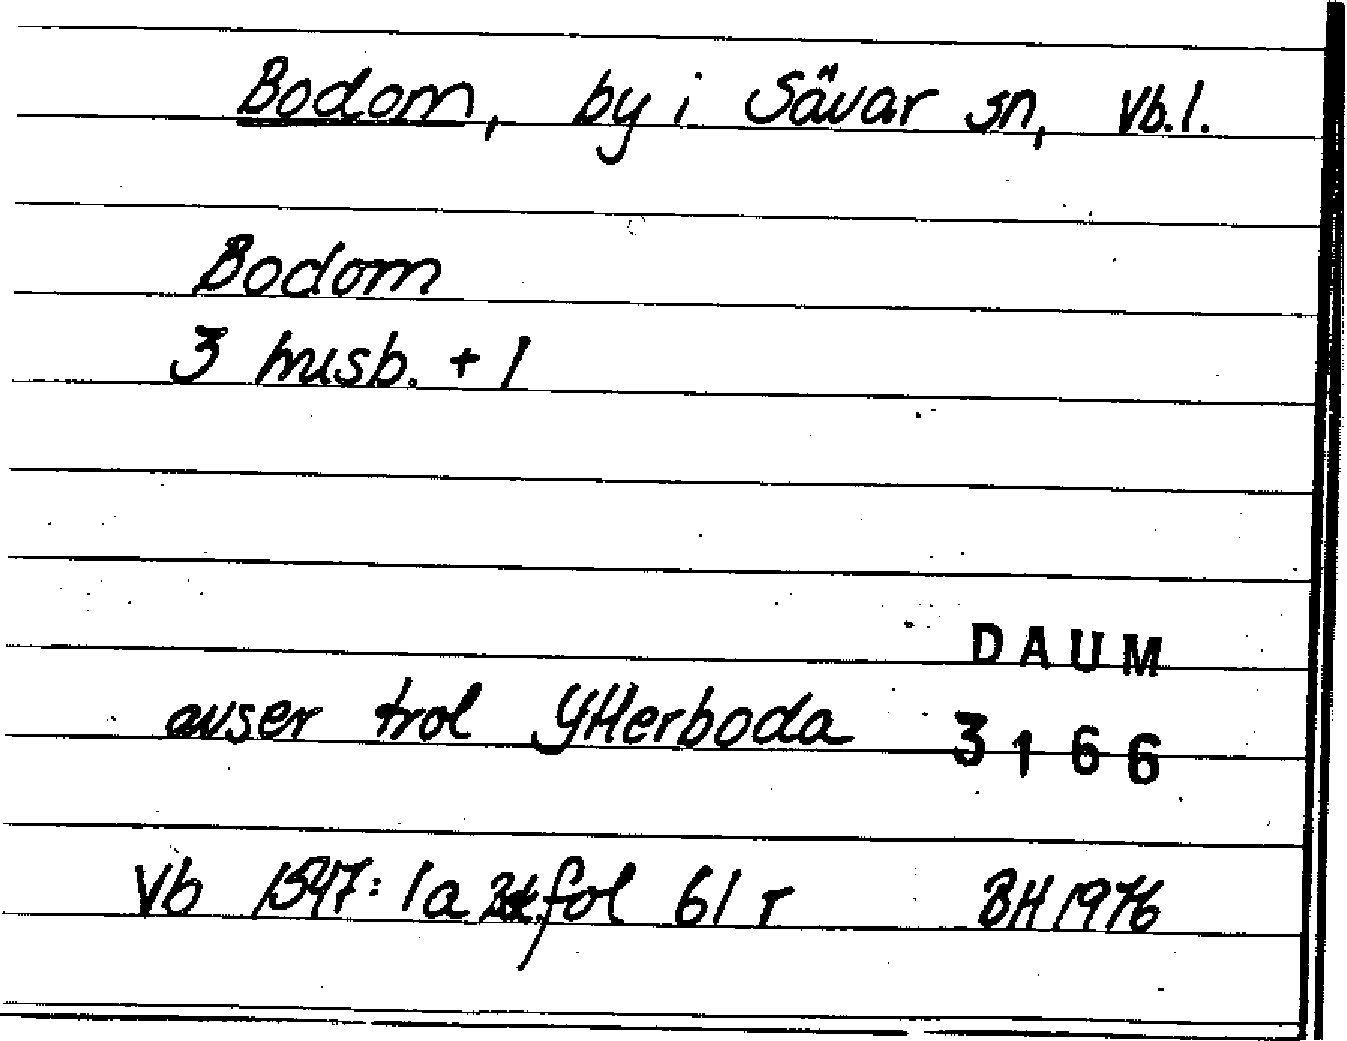 Bodom, by i Sävar sn, Vb.l.
Bodom
3 husb. + 1
DAUM
avser trol Ytterboda
3166
Vb 1547: 1a fol 61 r BH 1976